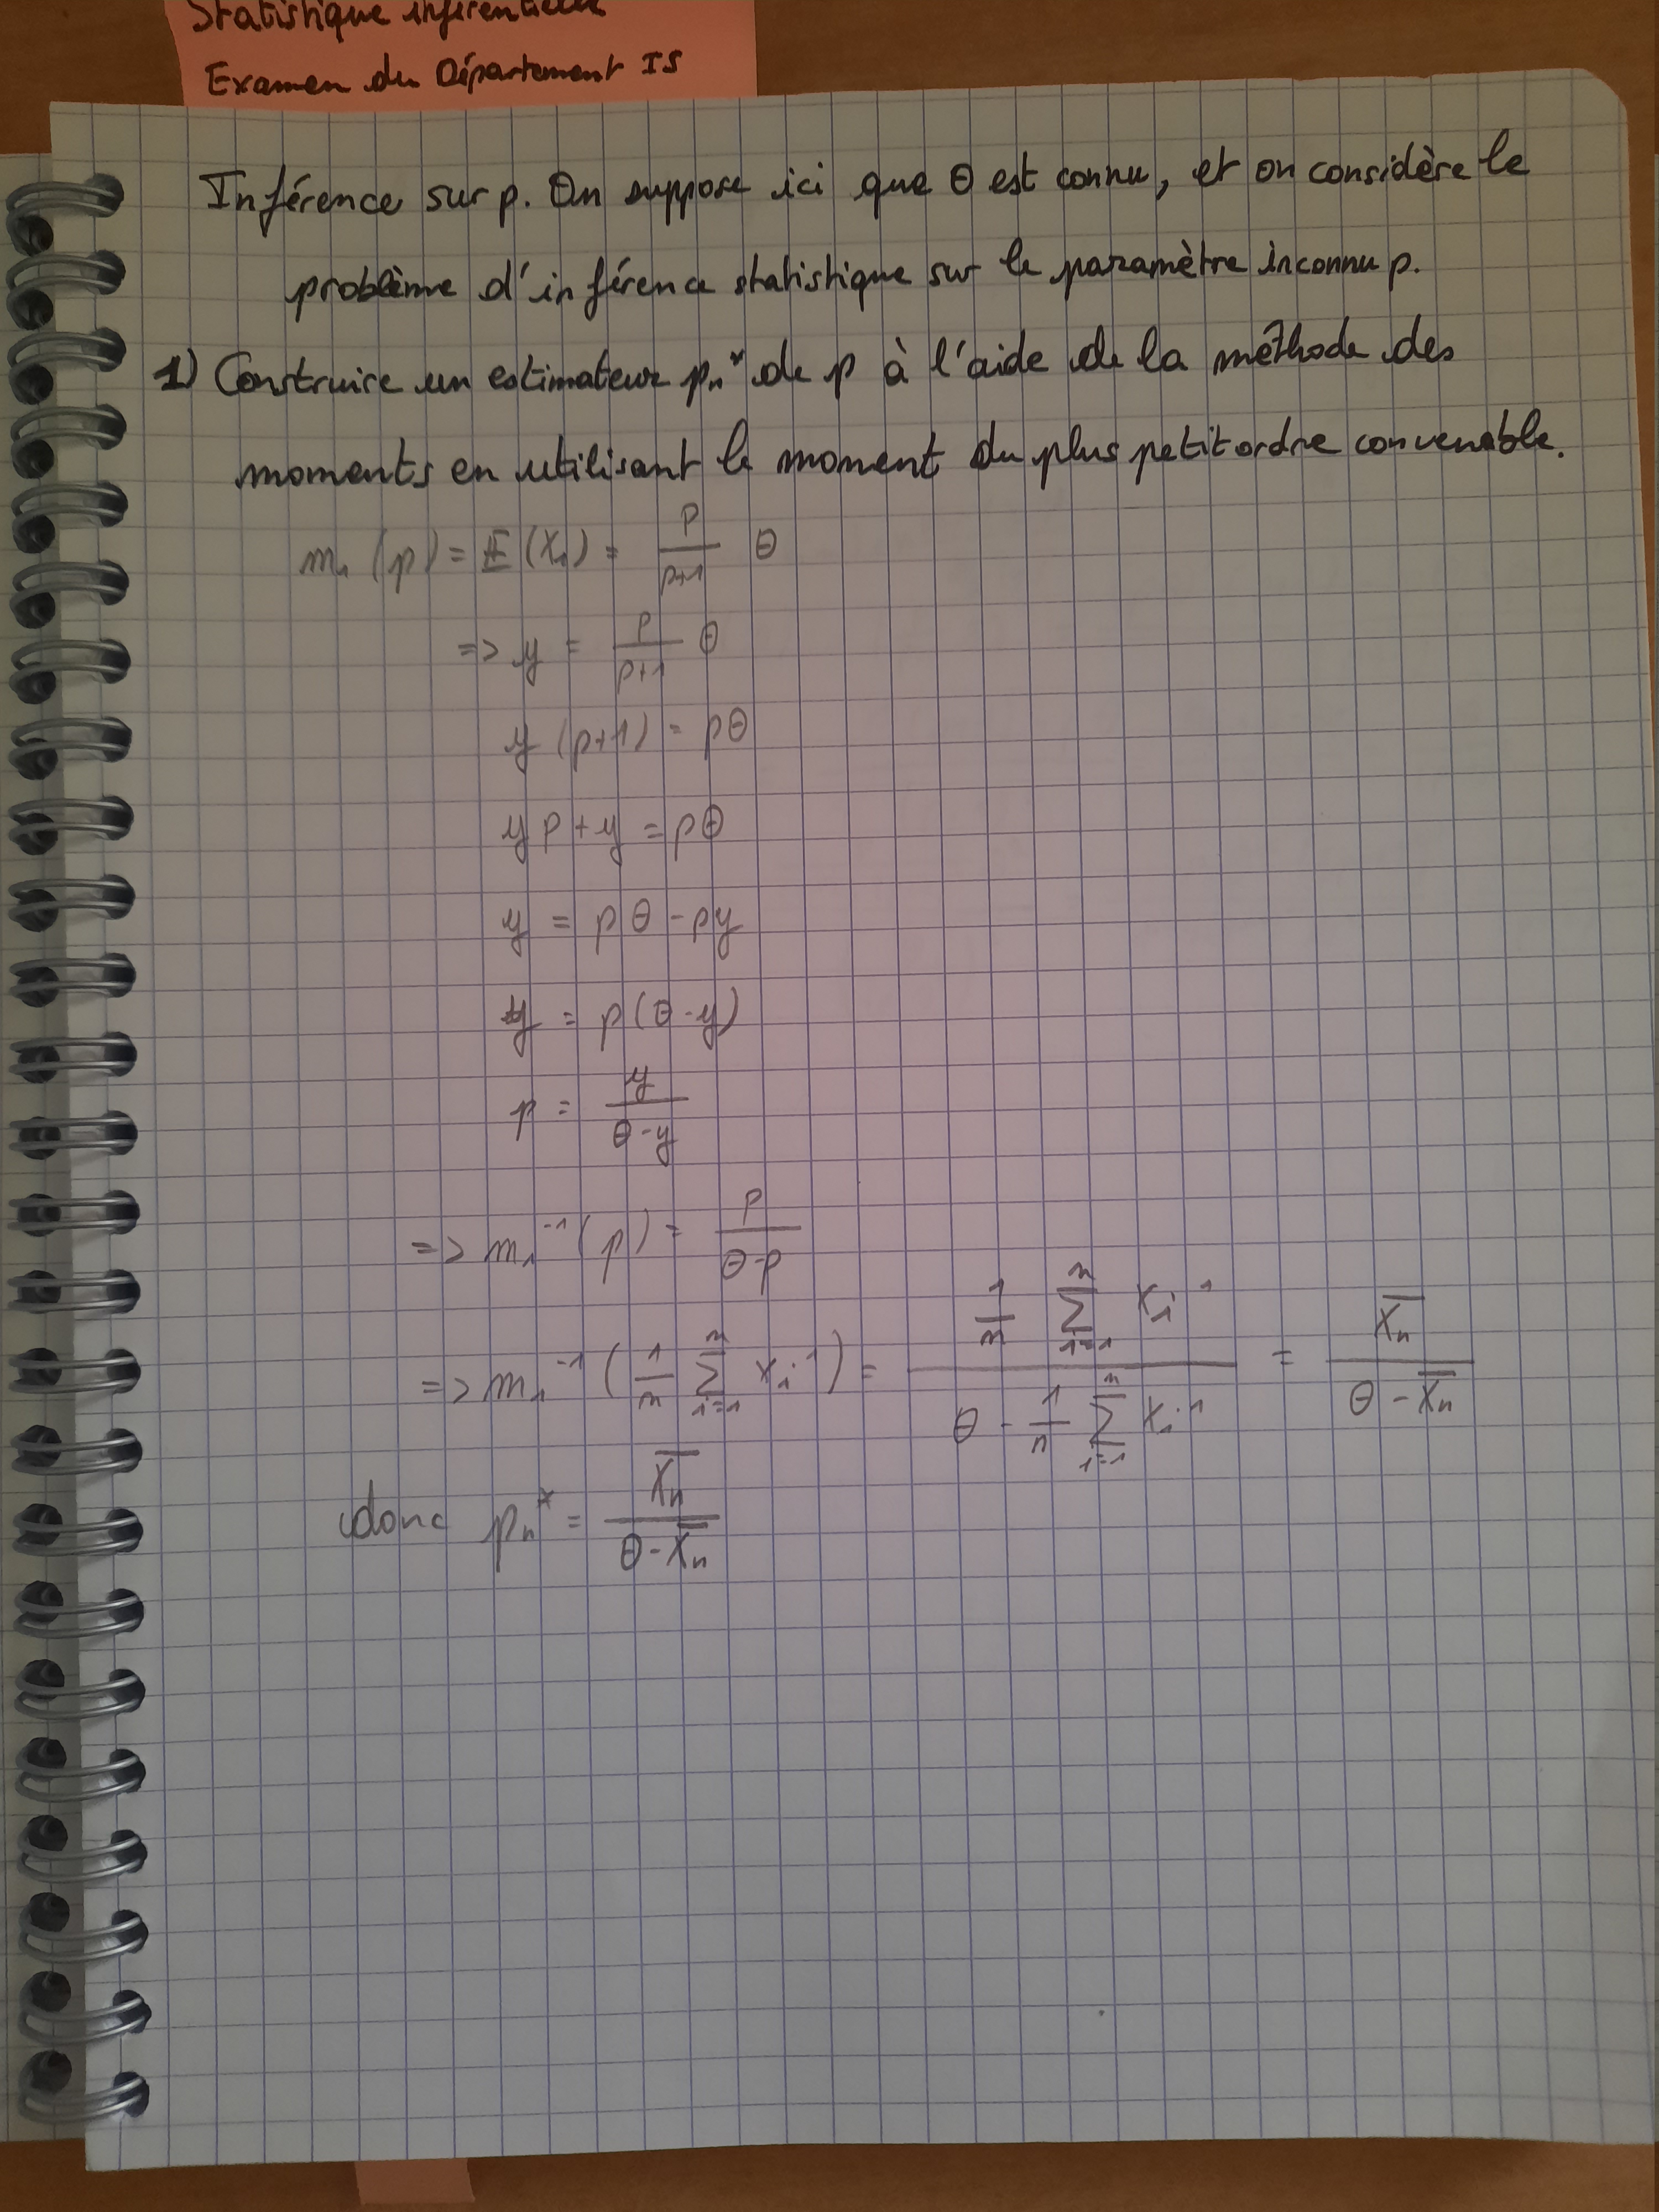 Statistique inférentielle
Examen du Département IS
Inférence sur p. On suppose ici que θ est connu, et on considère le
problème d'inférence statistique sur le paramètre inconnu p.
1) Construire un estimateur pₙ* de p à l'aide de la méthode des
moments en utilisant le moment du plus petit ordre convenable.
m₁(p) = 𝔼(X₁) = p/(p+1) θ
=> y = p/(p+1) θ
y(p+1) = pθ
yp + y = pθ
y = pθ - py
y = p(θ-y)
p = y/(θ-y)
=> m₁⁻¹(p) = p/(θ-p)
=> m₁⁻¹(1/n ∑ᵢ₌₁ⁿ Xᵢ¹) = (1/n ∑ᵢ₌₁ⁿ Xᵢ¹)/(θ - 1/n ∑ᵢ₌₁ⁿ Xᵢ¹) = X̄ₙ/(θ - X̄ₙ)
donc pₙ* = X̄ₙ/(θ - X̄ₙ)